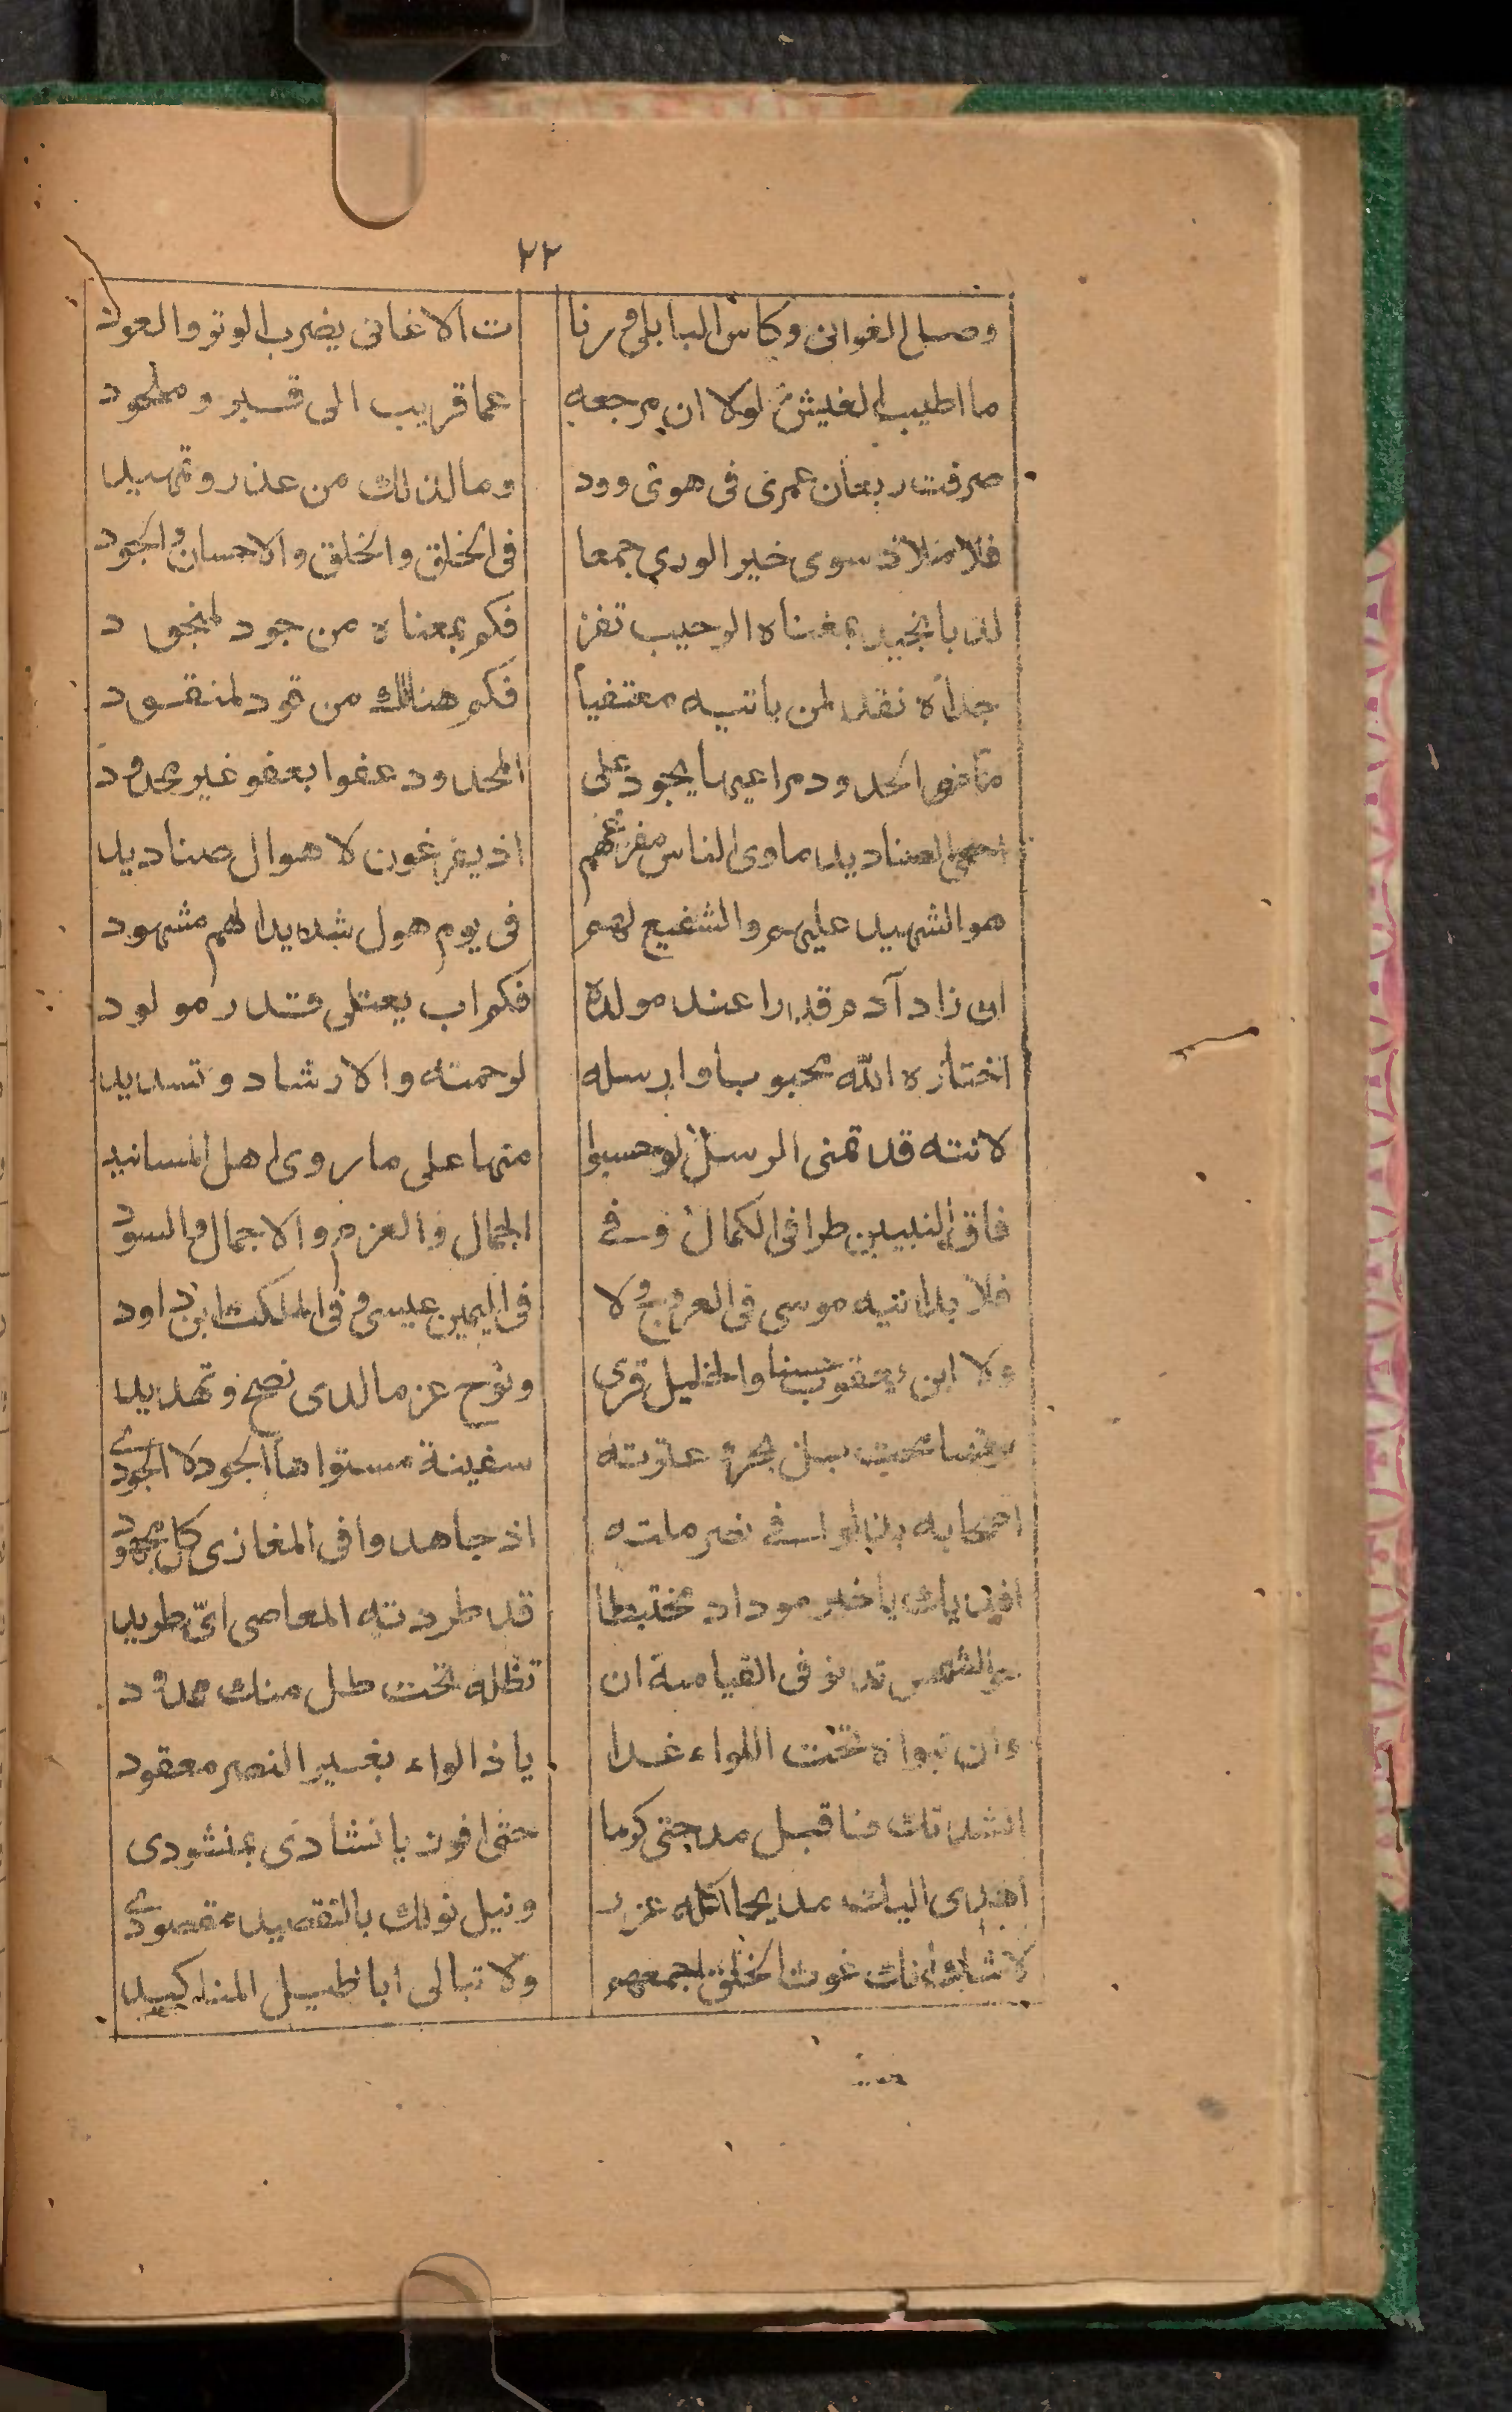 ٢٢
وصال الغوانى وكاس البابلى ورنا ت الاغانى بضرب الوتر والعود
ما اطيب العيش لولا ان مرجعه عما قريب الى قبر وملحود
صرفت ريعان عمرى فى هوى ودد وما لذلك من عذر وتمهيد
فلا ملاذ سوى خير الورى جمعا فى الخلق والخلق والاحسان والجود
لذ بالمجيد بمغناه الرحيب تفز فكم بمعناه من جود لمنجود
جداه نقد لمن ياتيه معتفيا فكم هنالك من قود لمنقود
الحدود مراعيها يجود على المحدود عفوا بعفو غير محدود
الصناديد ماوى الناس مفزعهم اذ يفزعون لاهوال صناديد
هو الشهيد عليهم والشفيع لهم فى يوم هول شديد الهم مشهود
ابن زاد آدم قدرا عند مولده فكم اب يعتلى قدر مولود
اختاره الله محبوبا وارسله لرحمته والارشاد وتسديد
لانته قد تمنى الرسل لو حسبوا منها على ما روى اهل المسانيد
فاق النبيين طرا فى الكمال وفى الجمال والعزم والاجمال والسود
فلا يدانيه موسى فى العروج ولا فى اليمين عيسى وفى الملكت ابن داود
ولا ابن يعقوب حسنا والخليل قرى ونوح عزما لدى نصح وتهديد
عترته سفينة مستواها الجود لا الجودى
اصحابه بذلوا فى نصر ملته اذ جاهدوا فى المغازى كل مجهود
يا خير موداد مختبطا قد طردته المعاصى اىّ طريد
والشمس تدنو فى القيامة ان تظله تحت ظل منك ممدود
وان تبواه تحت اللواء غدا يا ذا لواء بغير النصر معقود
انشدتك منا قبل مدحتى كرما حتى افوز يا نشادى بمنشودى
اهدى اليك مديحا كله غرر ونيل نولك بالتقصيد مقصودى
لا شك انك غوث الخلق اجمعهم ولا تبالى اباطيل المناكيد